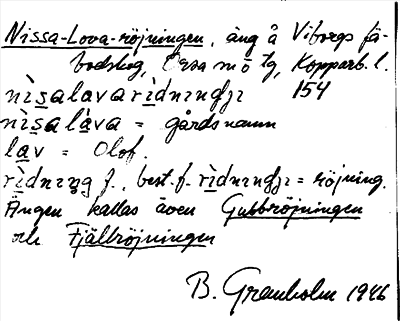 Nissa-Lova-röjningen, äng å Viborgs fä-
bodskog, Orsa sn Kopparb. l.
nìsalavarìdnındjı 154
nìsa làva = gårdsnamn
lav = Olof.
rìdnıŋg f., best. f. rìdnındjı = röjning.
Ängen kallas även Gubbröjningen
och Fjällröjningen
B. Granholm 1946